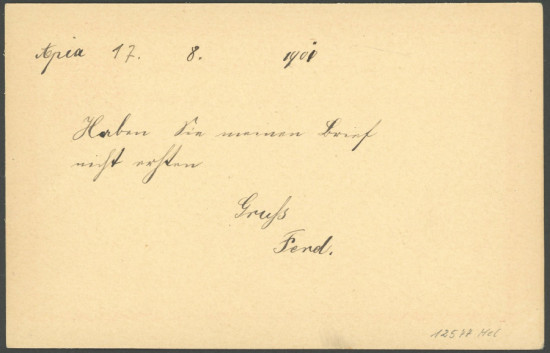 Apia 17. 8. 1901
Haben Sie meinen Brief
nicht erhten
Gruß
Ferd.